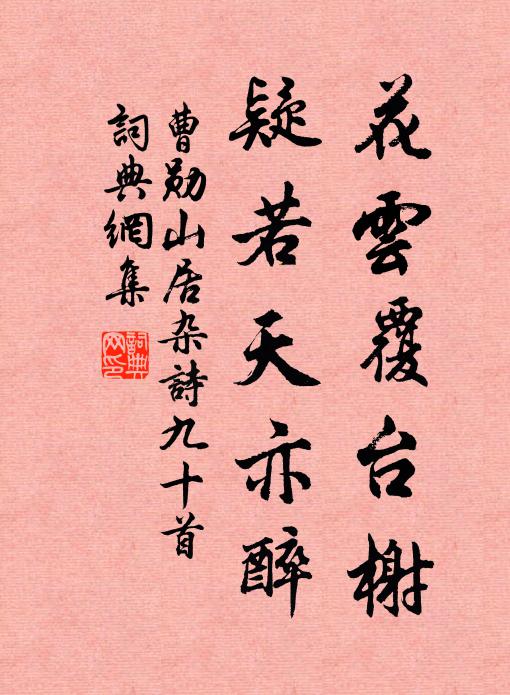 花雲覆台榭
疑若天亦醉
曹勛山居杂詩九十首
詞典網集
詞典
网印